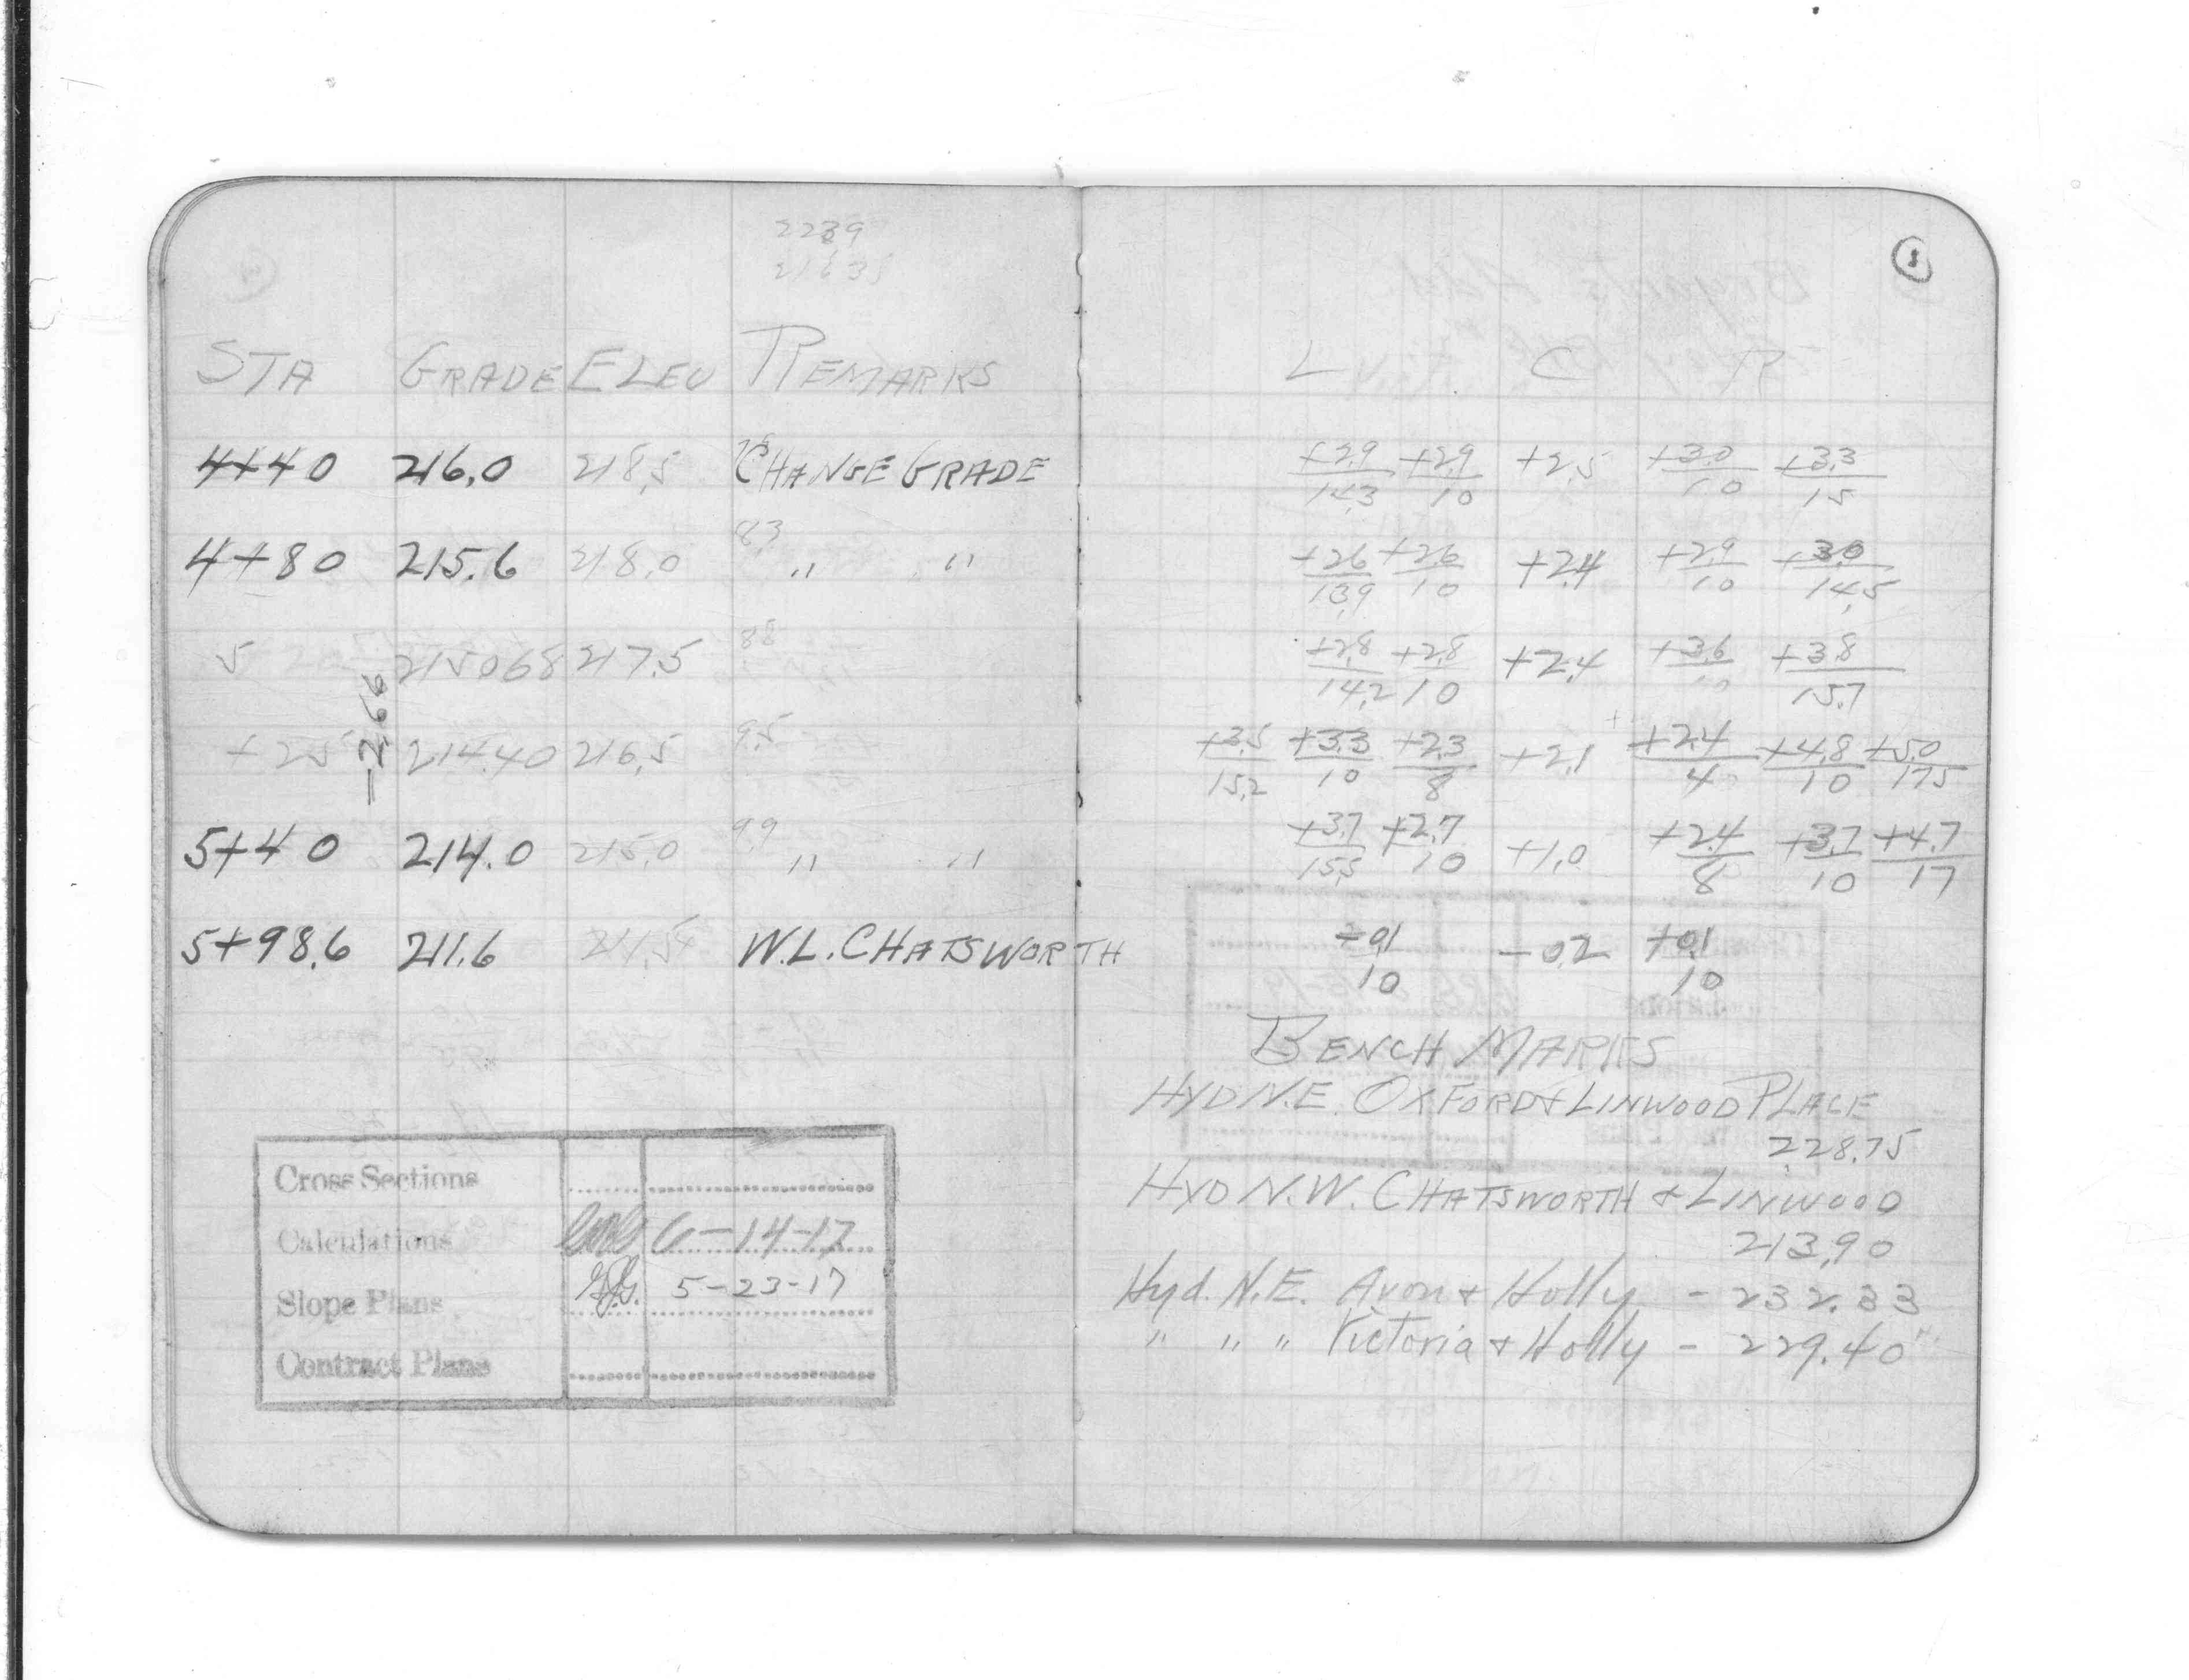 2239
STA GRADE ELEV REMARKS L C R
4+40 216.0 218.5 CHANGE GRADE +2.9/14.3 +2.9/10 +2.5 +3.0/10 +3.3/15
83
4+80 215.6 218.0 " " +2.6/13.9 +2.6/10 +2.4 +2.9/10 +3.0/14.5
88
5 215068 217.5 +2.8/14.2 +2.8/10 +2.4 +3.6/10 +3.8/15.7
-2.66
9.5
+25 214.40 216.5 +3.5/15.2 +3.3/10 +2.3/8 +2.1 +2.4/4 +4.8/10 +5.0/17.5
9.9
5+40 214.0 215.0 " " +3.7/15.5 +2.7/10 +1.0 +2.4/8 +3.7/10 +4.7/17
5+98.6 211.6 W.L. CHATSWORTH 0.1/10 -0.2 +0.1/10
BENCH MARKS
HYD N.E. OXFORD & LINWOOD PLACE
228.75
HYD N.W. CHATSWORTH & LINWOOD
213.90
Hyd. N.E. Avon & Holly - 232.33
" " " Victoria & Holly - 229.40
Cross Sections
Calculations 6-14-17
Slope Plans 5-23-17
Contract Plans